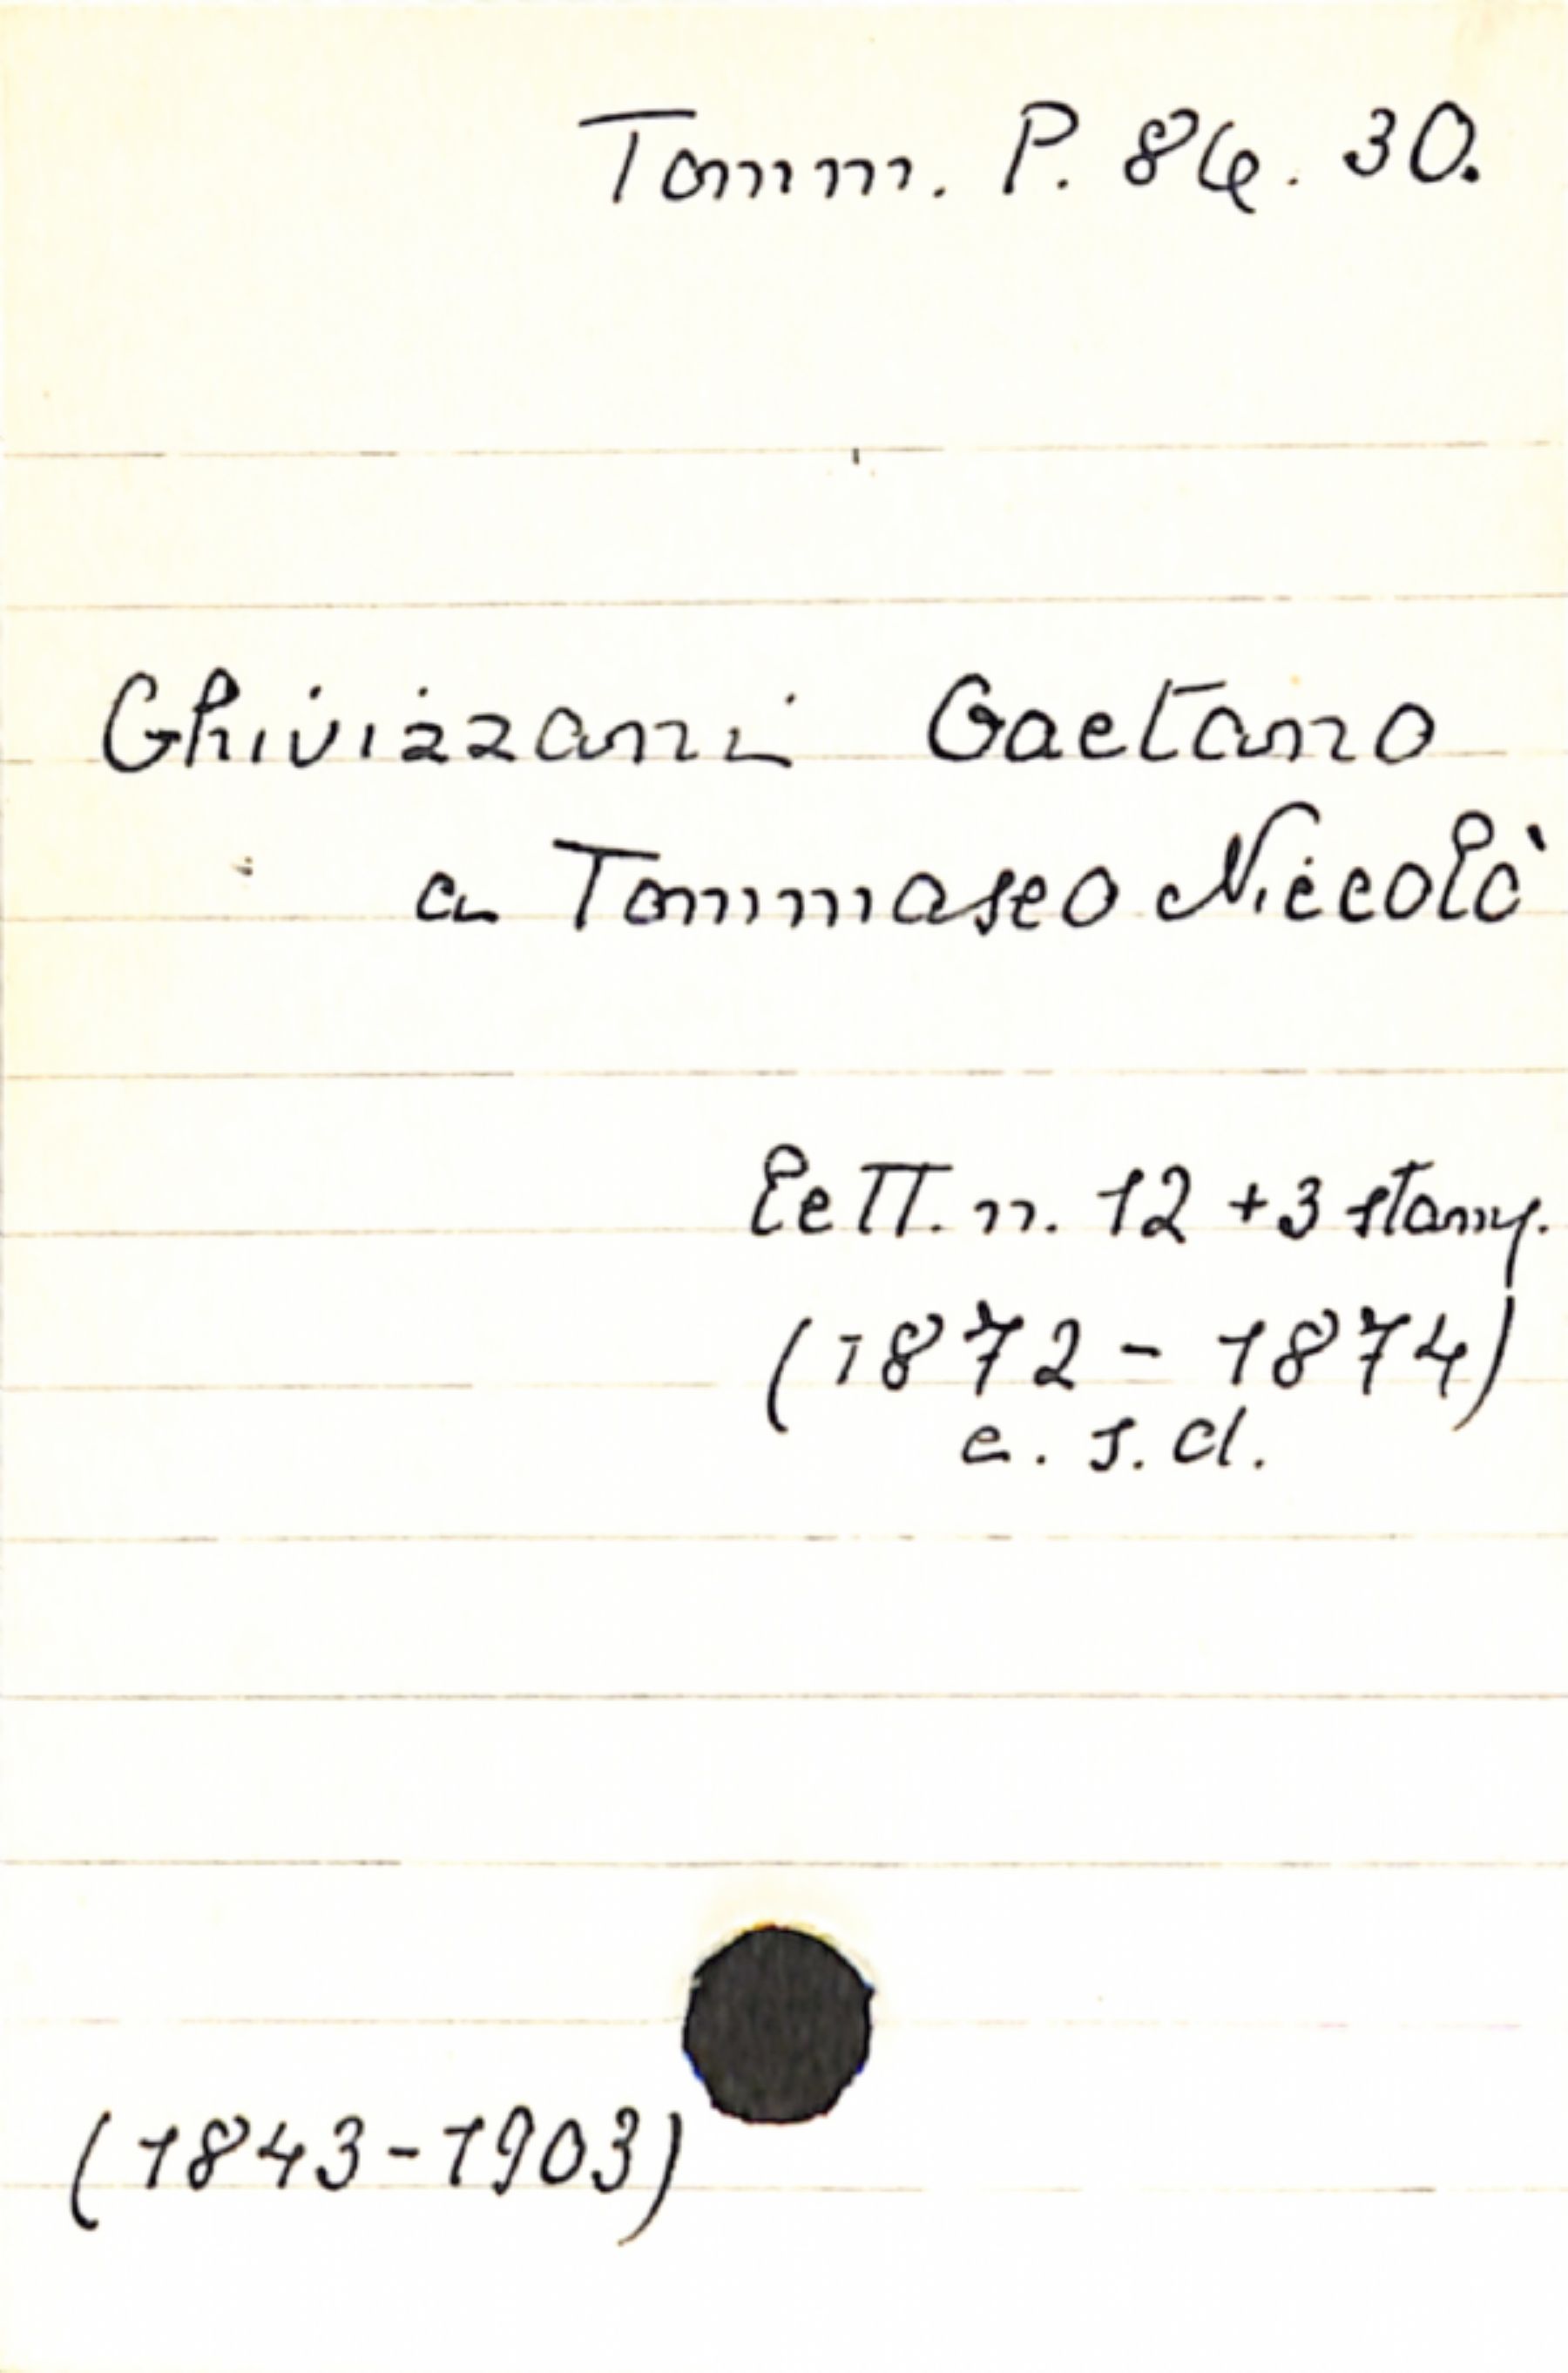 Tomm. P. 84. 30.
Ghivizzani Gaetano
a Tommaseo Niccolò
Lett. n. 12 + 3 stamp.
(1872 - 1874)
e. s. d.
(1843-1903)